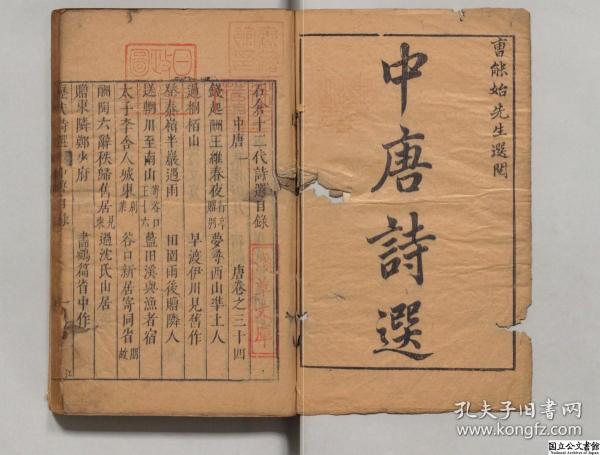 曹能始先生選閱
中唐詩選
石倉十二代詩選目錄
中唐一 唐卷之三十四
錢起酬王維春夜 夢尋西山準上人
過桐柏山 早渡伊川見舊作
登秦嶺半巖遇雨 田園雨後贈隣人
送 輞川至南山 藍田溪與漁者宿
太子李舍人城東 谷口新居寄同省
酬陶六辭秩歸舊居 過沈氏山居
贈東隣鄭少府 畫鶴篇省中作
日本
孔夫子旧书网
www.kongfz.com
国立公文書館
National Archives of Japan